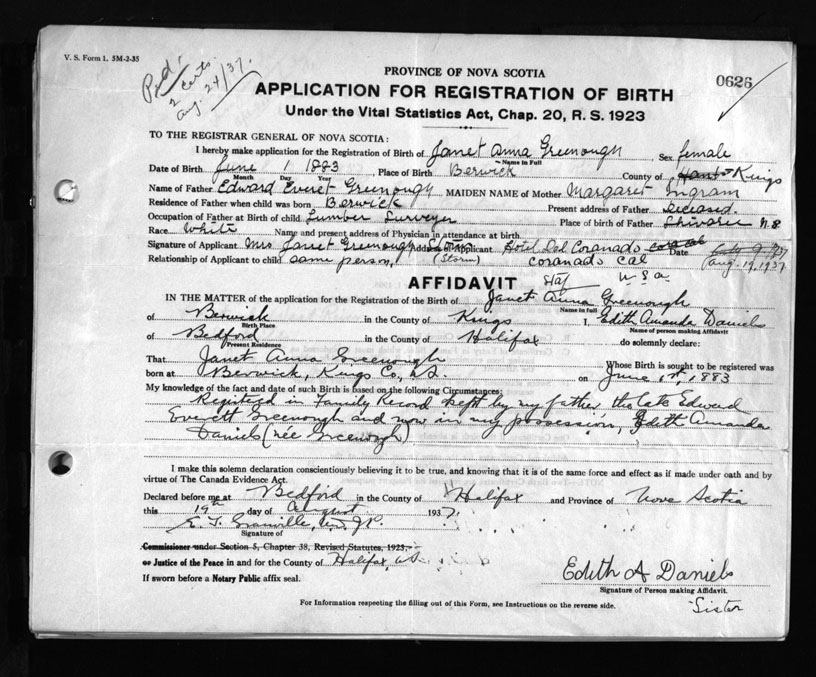 V. S. Form 1. 5M-2-35
Pxd.
2 certs.
Aug. 24/37.
0626
PROVINCE OF NOVA SCOTIA
APPLICATION FOR REGISTRATION OF BIRTH
Under the Vital Statistics Act, Chap. 20, R. S. 1923
TO THE REGISTRAR GENERAL OF NOVA SCOTIA:
I hereby make application for the Registration of Birth of Janet Anna Greenough Sex female
Name in Full
Date of Birth June 1 1883, Place of Birth Berwick County of Hants Kings
Month Day Year
Name of Father Edward Everet Greenough MAIDEN NAME of Mother Margaret Ingram
Residence of Father when child was born Berwick Present address of Father deceased.
Occupation of Father at Birth of child Lumber Surveyer Place of birth of Father Shivarie N.S
Race White Name and present address of Physician in attendance at birth
Signature of Applicant Mrs Janet Greenough Storm Address of Applicant Hotel Del Coranado Date
(Storm) coranado Cal Aug. 19, 1937
Relationship of Applicant to child same person,
U.S.a.
AFFIDAVIT
IN THE MATTER of the application for the Registration of the Birth of Janet Anna Greenough
Name in full
of Berwick in the County of Kings I, Edith Amanda Daniels
Birth Place Name of person making Affidavit
of Bedford in the County of Halifax do solemnly declare:
Present Residence
That Janet Anna Greenough Whose Birth is sought to be registered was
born at Berwick, Kings Co., N.S. on June 1st, 1883
My knowledge of the fact and date of such Birth is based on the following Circumstances:
Registered in Family Record kept by my father the late Edward
Everett Greenough and now in my possession, Edith Amanda
Daniels (née Greenough)
I make this solemn declaration conscientiously believing it to be true, and knowing that it is of the same force and effect as if made under oath and by
virtue of The Canada Evidence Act.
Declared before me at Bedford in the County of Halifax and Province of Nova Scotia
this 19th day of August 1937.
E. T. Granville, J.P.
Signature of
Commissioner under Section 5, Chapter 38, Revised Statutes, 1923,
or Justice of the Peace in and for the County of Halifax,
If sworn before a Notary Public affix seal.
Edith A Daniels
Signature of Person making Affidavit.
Sister
For Information respecting the filling out of this Form, see Instructions on the reverse side.